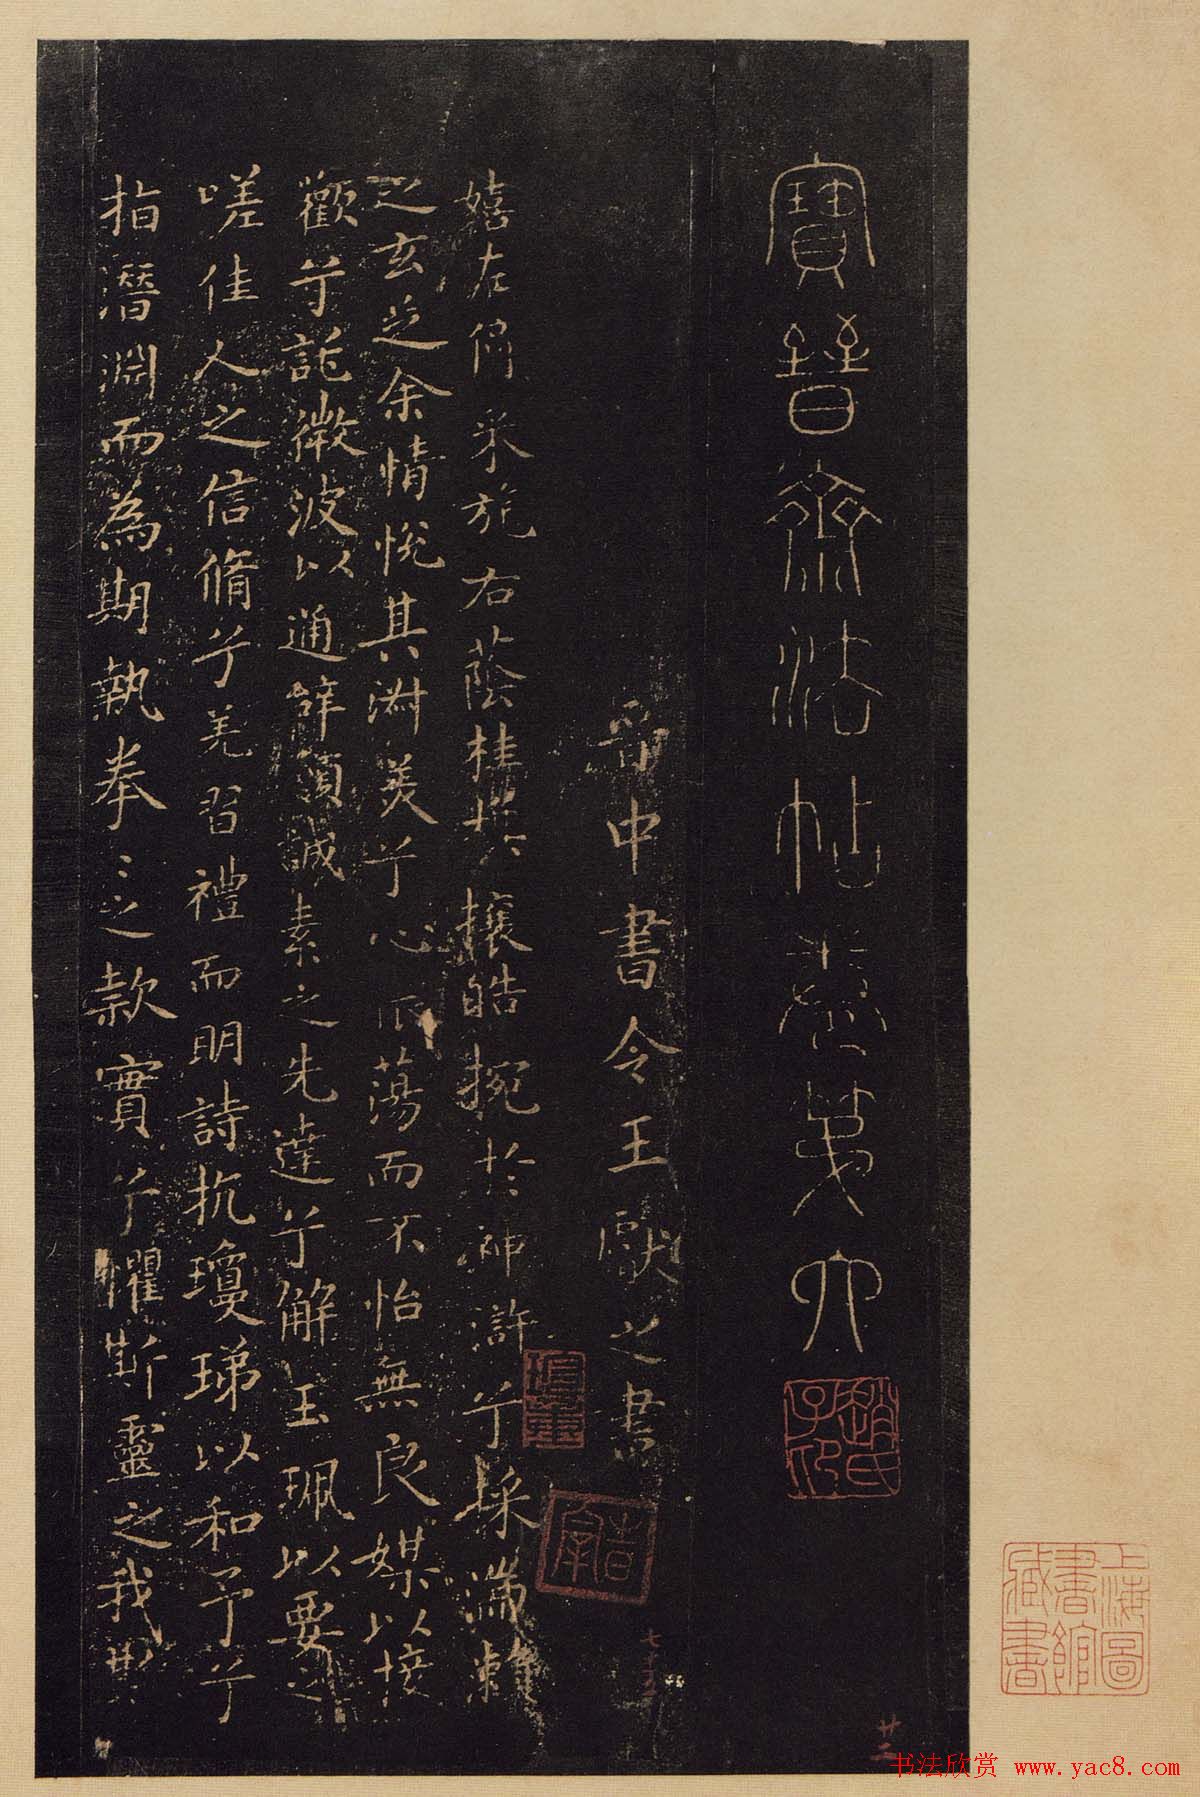 寶晉齋法帖卷第六
趙氏子印
晉中書令王獻之書
嬉左倚采旄右蔭桂旗攘皓捥於神滸兮採湍瀨
之玄芝余情悅其淑美兮心振蕩而不怡無良媒以接
歡兮託微波以通辭願誠素之先達兮解玉珮以要之
嗟佳人之信脩兮羌習禮而明詩抗瓊珶以和予兮
指潛淵而為期執拳〻之款實兮懼斯靈之我欺
上海圖書館藏書
廿二
书法欣赏 www.yac8.com